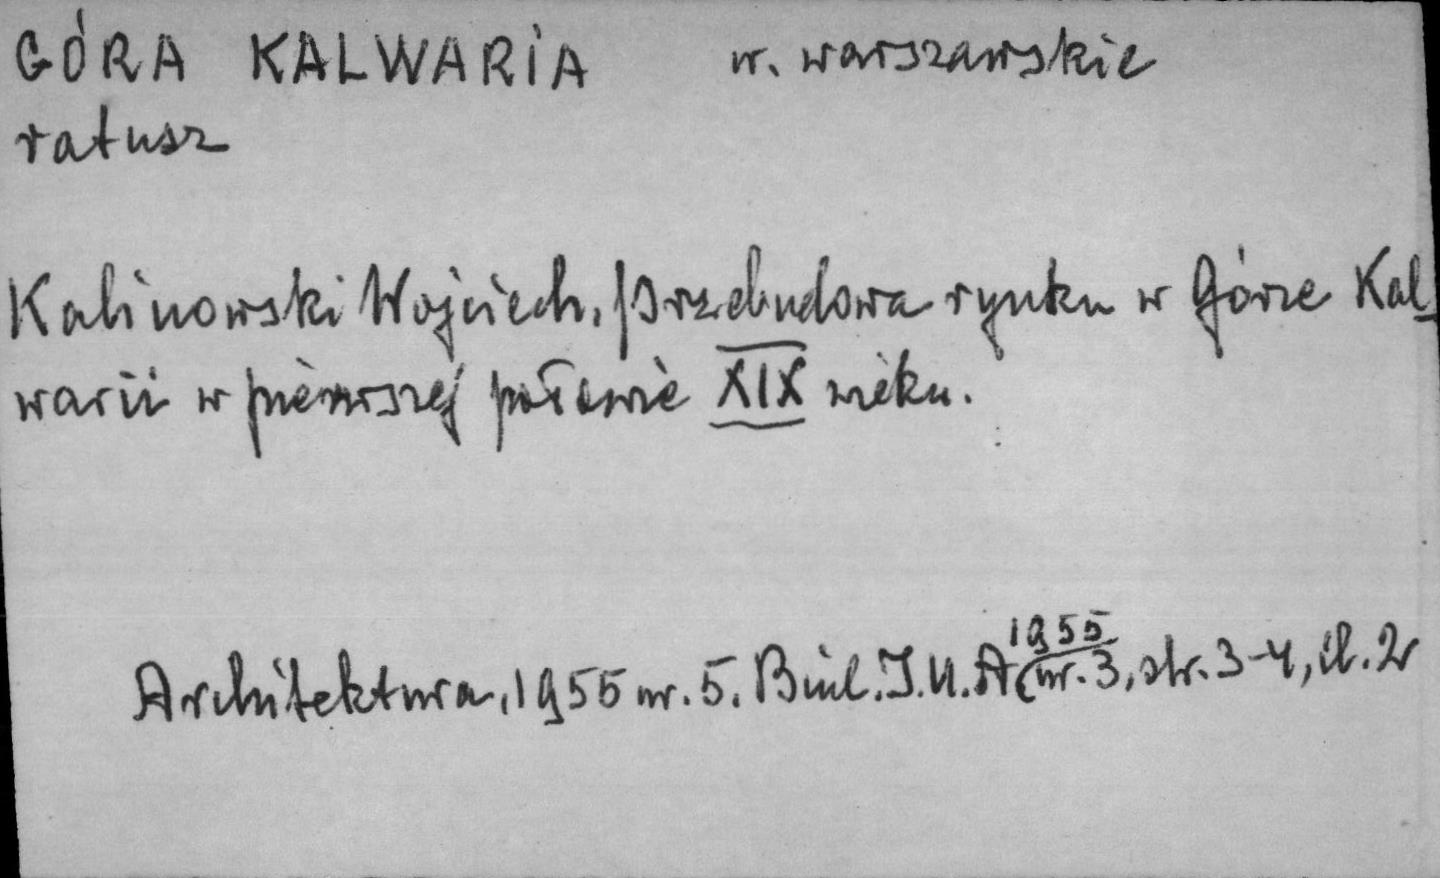 GÓRA KALWARIA w. warszawskie
ratusz
Kalinowski Wojciech, Przebudowa rynku w Górze Kal-
warii w pierwszej połowie XIX wieku.
Architektura, 1955 nr. 5. Biul. I.U.A 1955 nr. 3, str. 3-4, il. 2